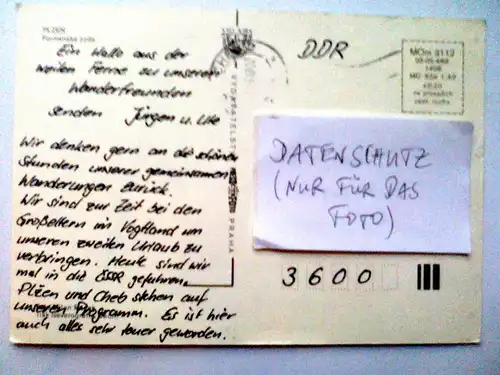 PLZEŇ
Ein Hallo aus der
weiten Ferne zu unseren
Wanderfreunden
senden Jürgen u. Ute
Wir denken gern an die schönen
Stunden unserer gemeinsamen
Wanderungen zurück.
Wir sind zur Zeit bei den
Großeltern im Vogtland um
unseren zweiten Urlaub zu
verbringen. Heute sind wir
mal in die ČSSR gefahren.
Plzen und Cheb stehen auf
unseren Programm. Es ist hier
auch alles sehr teuer geworden.
PRAHA
DDR
DATENSCHUTZ
(NUR FÜR DAS
FOTO)
3600